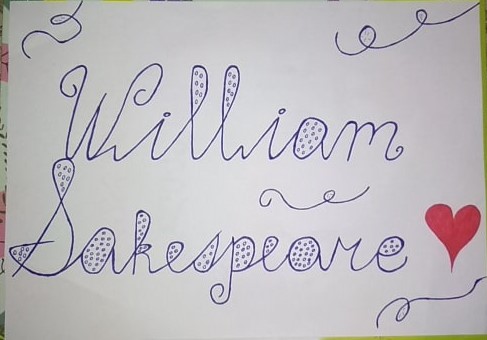 William
Sakespeare